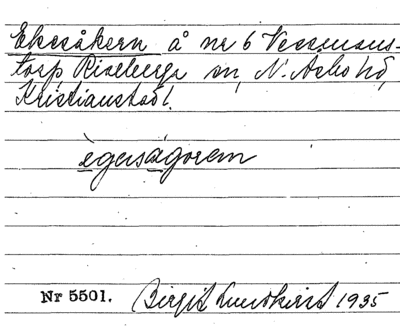 Eksåkern å nr 6 Vessmans-
torp Riseberga sn, N. Åsbo hd,
Kristianstad l.
ègersågoren
Nr 5501. Birgit Lundkvist 1935